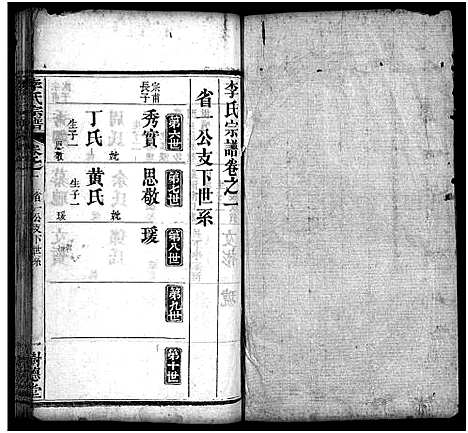 李氏宗譜卷之一
省一公支下世系
第六世
第七世
第八世
第九世
第十世
宗甫長子
秀實
思敬
瑗
丁氏
黄氏
生子一
思敬
生子一
瑗
李氏宗譜
卷之一
省一公支下世系
一